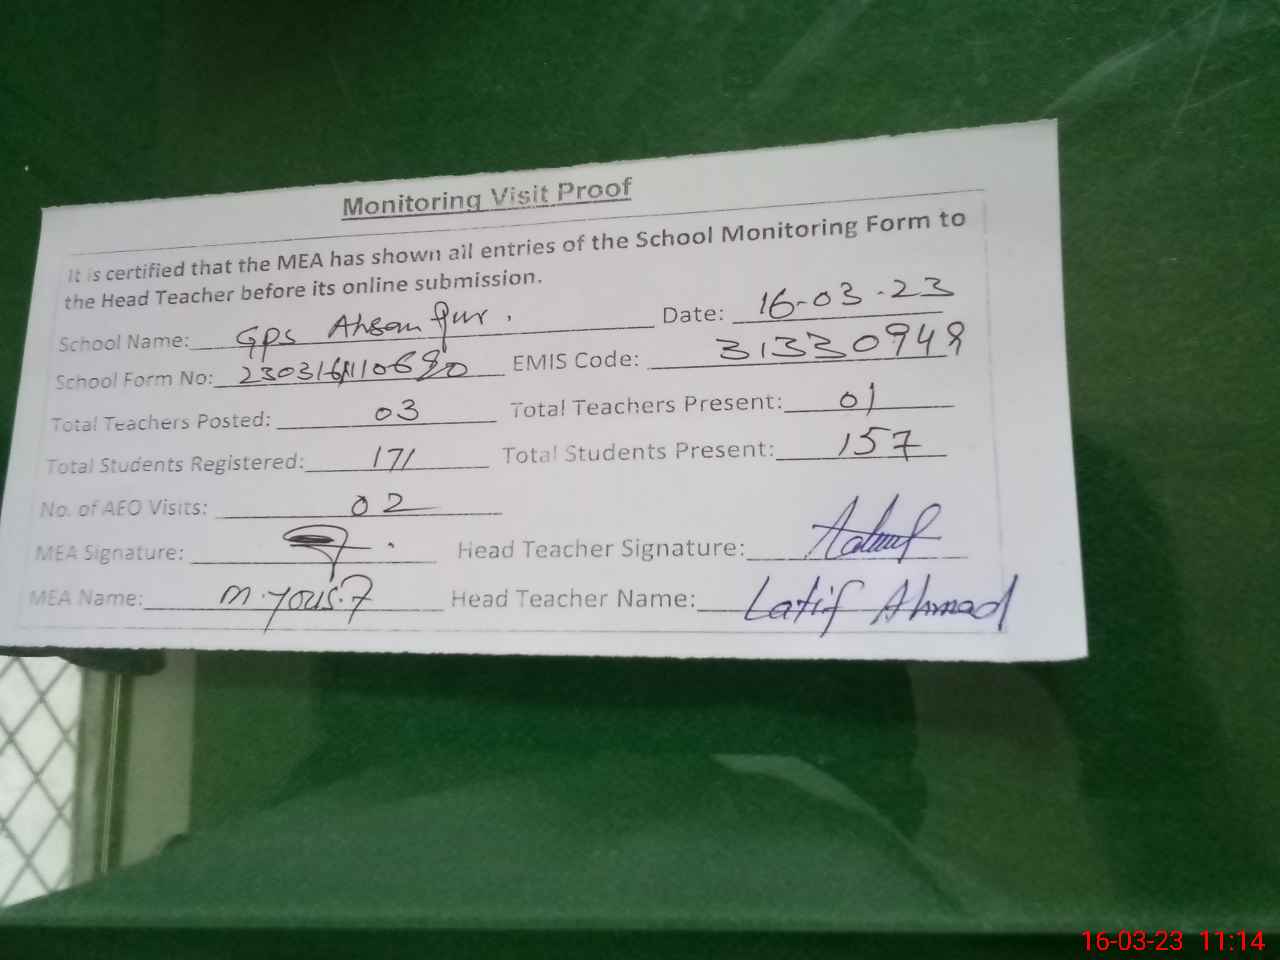 Monitoring Visit Proof
It is certified that the MEA has shown all entries of the School Monitoring Form to
the Head Teacher before its online submission.
School Name: GPS Ahsan Pur. Date: 16-03-23
School Form No: EMIS Code: 31330949
Total Teachers Posted: 03 Total Teachers Present: 01
Total Students Registered: 171 Total Students Present: 157
No. of AEO Visits: 02
MEA Signature: Head Teacher Signature:
MEA Name: Head Teacher Name: Latif Ahmad
16-03-23 11:14